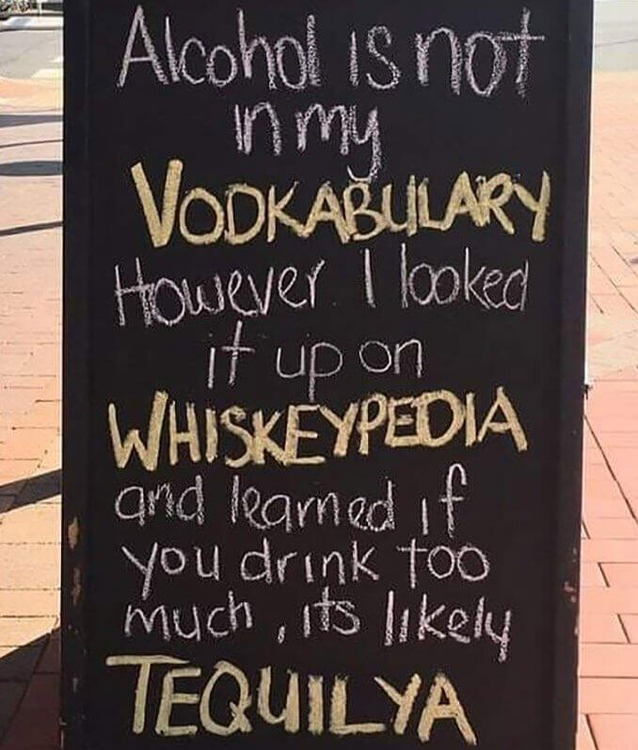 Alcohol is not
in my
VODKABULARY
However I looked
it up on
WHISKEYPEDIA
and learned if
you drink too
much, its likely
TEQUILYA